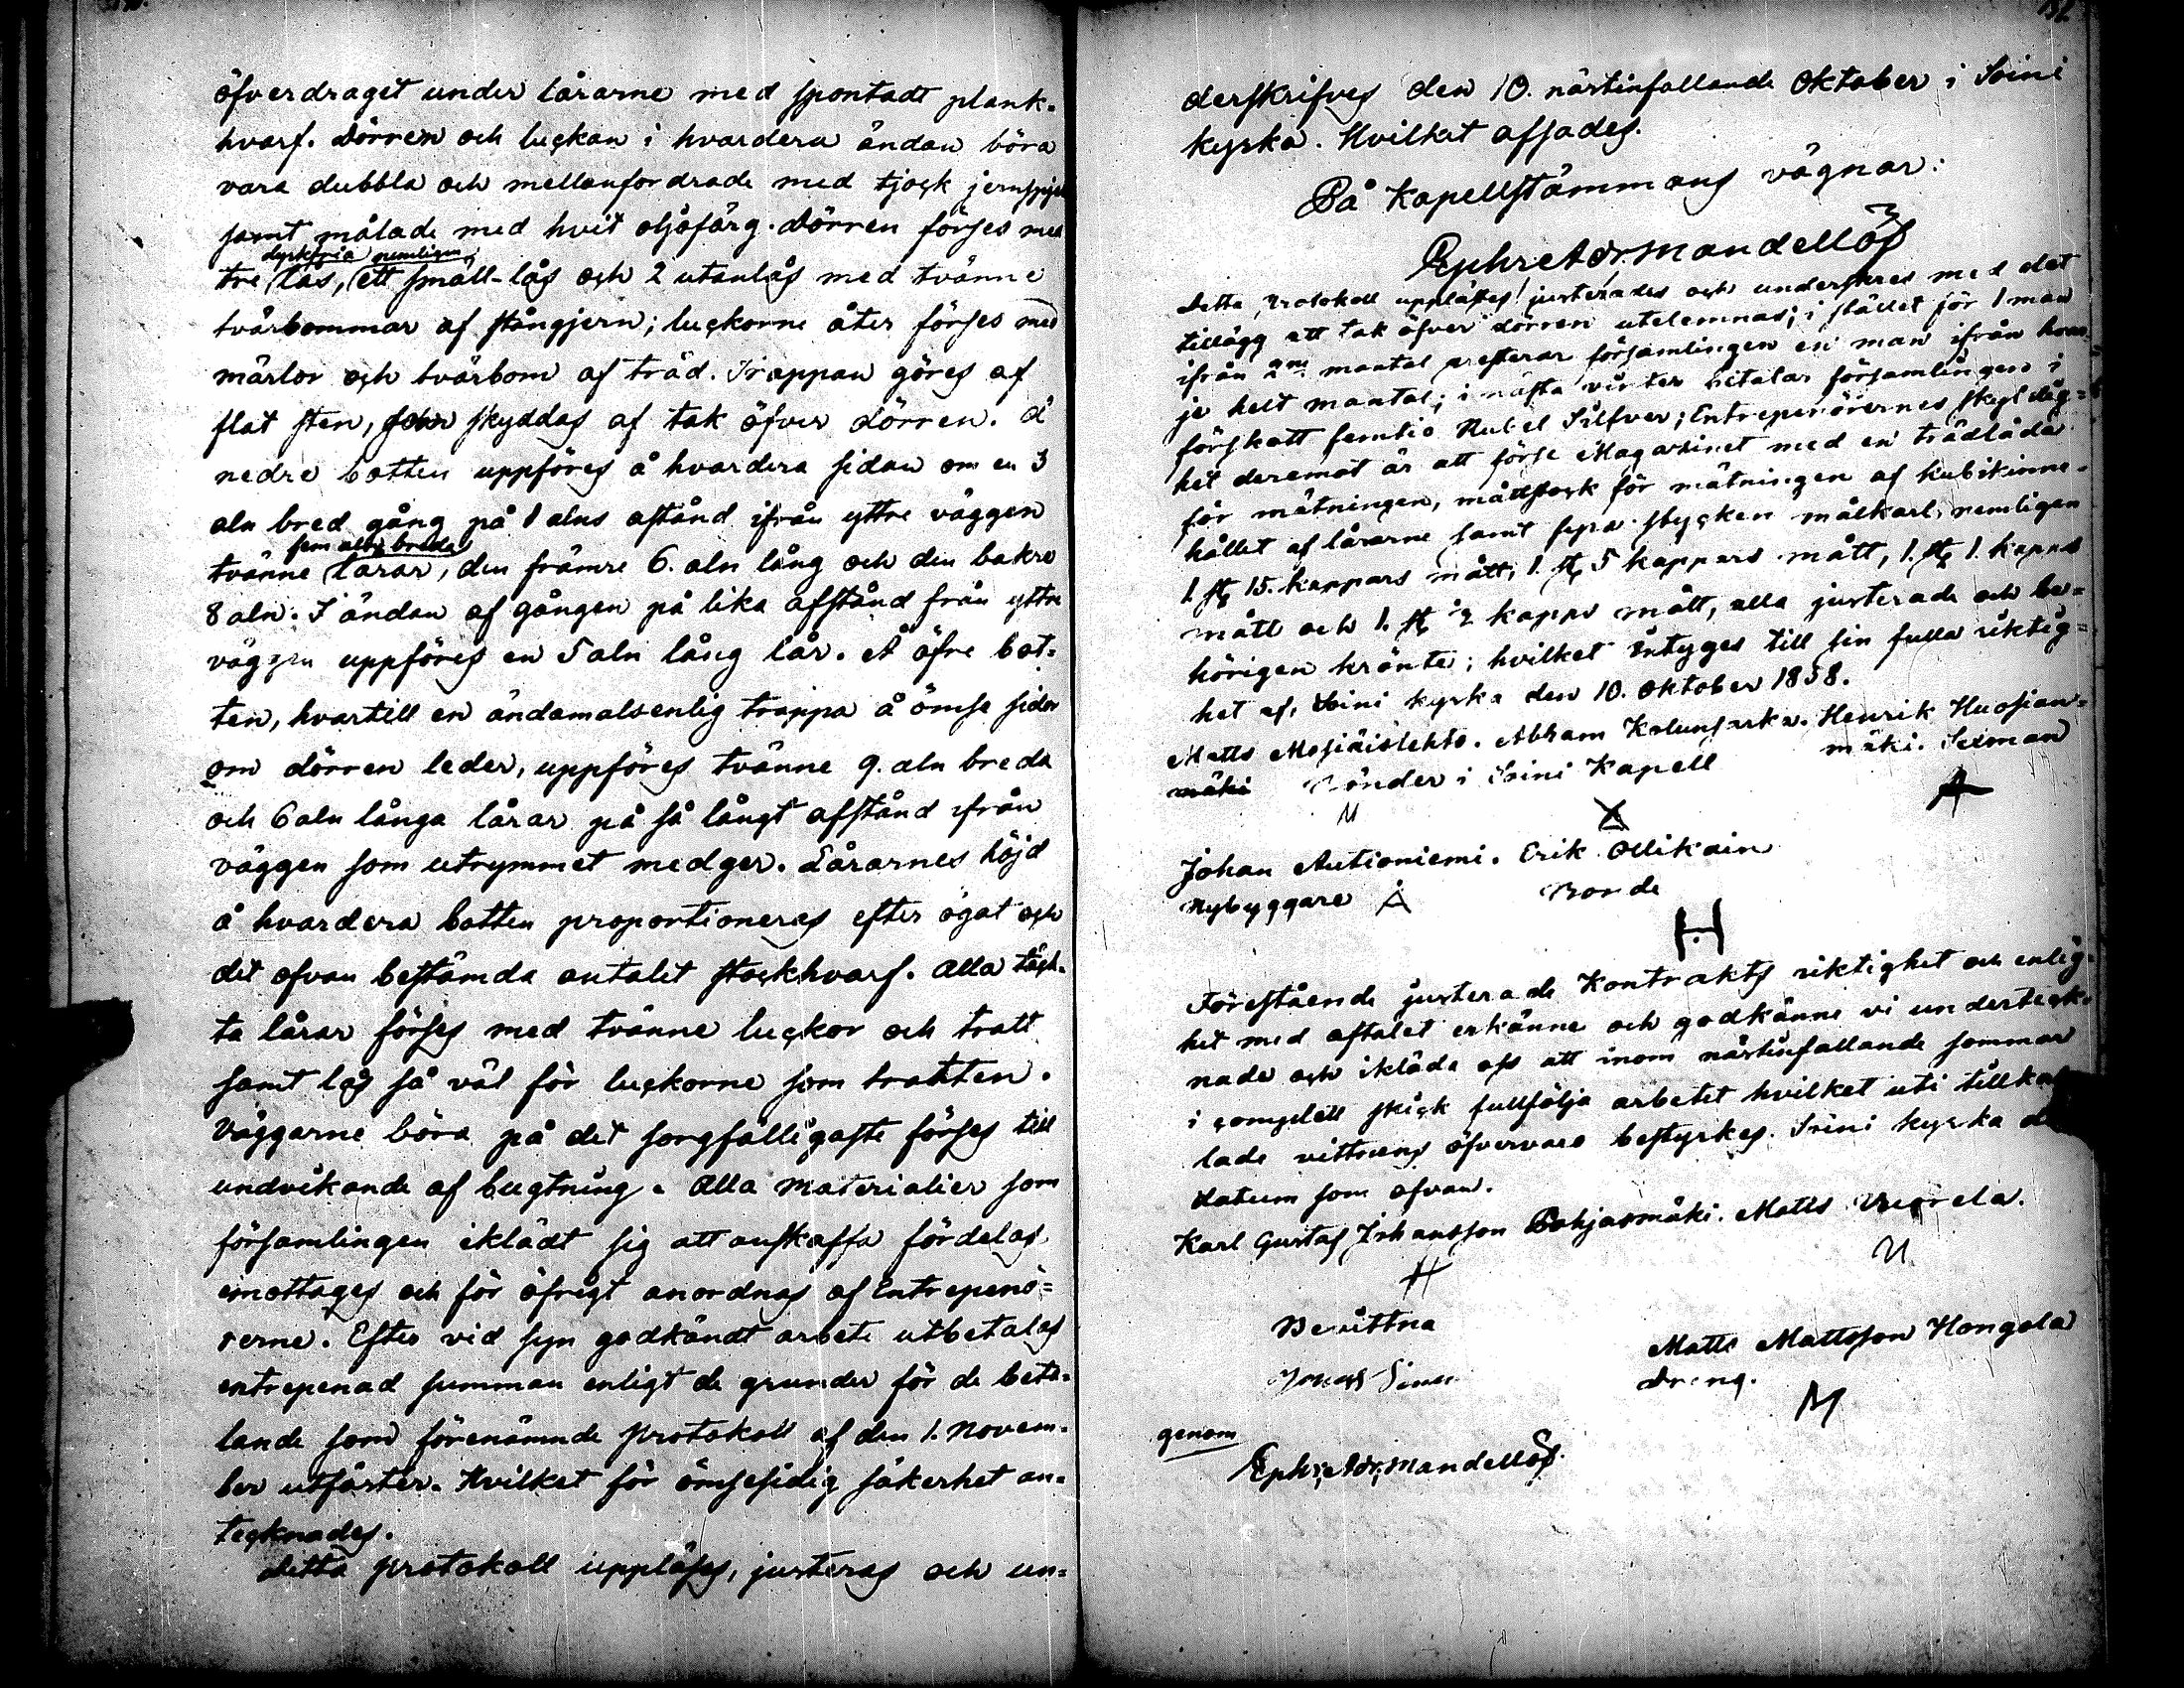 öfverdraget under lårarne med spontadt plank-
hvarf. Dörren och luckan i hvardera ändan böra
vara dubbla och mellanfordrade med tjock jernspjel
samt målade med hvit oljefärg. Dörren förses med
dyrkfria nemligen
tre lås, ett small-lås och 2 utanlås med tvänne
tvärbommar af stångjern; luckorne åter förses med
märlor och tvärbom af träd. Trappan göres af
flat sten, som skyddas af tak öfver dörren. Å
nedre botten uppföres å hvardera sidan om en 3
aln bred gång på 1 alns afstånd ifrån yttre väggen
fem alns breda
tvänne lårar, den främre 6. aln lång och den bakre
8 aln. I ändan af gången på lika afstånd från yttre
väggen uppföres en 5 aln lång lår. Å öfre bot-
ten, hvartill en ändamålsenlig trappa å ömse sidor
om dörren leder, uppföres tvänne 9. aln breda
och 6 aln långa lårar på så långt afstånd ifrån
väggen som utrymmet medger. Lårarnes höjd
å hvardera botten proportioneras efter ögat och
det ofvan bestämda antalet stockhvarf. Alla täck-
ta lårar förses med tvänne luckor och tratt
samt lås så väl för luckorne som tratten.
Väggarne böra på det sorgfälligaste förses till
undvikande af bugtning. Alla materialier som
församlingen iklädt sig att anskaffa fördelas
emottages och för öfrigt anordnas af Entrepenö-
rerne. Efter vid syn godkändt arbete utbetalas
entrepenad summan enligt de grunder för de beta-
lande som förenämnde protokoll af den 1. Novem-
ber utfäster. Hvilket för ömsesidig säkerhet an-
tecknades.
Detta protokoll uppläses, justeras och un-
derskrifves den 10. nästinfallande Oktober i Soini
kyrka. Hvilket afsades.
På Kapellstämmans vägnar:
Ephr. Adr. Mandellöf
Detta Protokoll upplästes, justerades och underskres med det
tillägg att tak öfver dörren utelemnas; i stället för 1 man
ifrån 2ne mantal presterar församlingen en man ifrån hvar-
je helt mantal; i nästa vinter betalar församlingen i
förskott femtio Rubel Silfver; Entrepenörernes skyldig-
het deremot är att förse Magazinet med en trädlåda
för mätningen, måttstock för mätningen af kubikinne-
hållet af lårarne samt fyra stycken målkarl, nemligen
1. st. 15. kappars mått, 1. st. 5 kappars mått, 1. st. 1. kapps
mått och 1. st. ½ kapps mått, alla justerade och be-
hörigen krönte; hvilket intyges till sin fulla riktig-
het af, Soini kyrka den 10. Oktober 1858.
Matts Mosiäislehto. Abham Kolunsarka. Henrik Huosian-
mäki Bönder i Soini Kapell mäki. Sexman
M X A
Johan Autioniemi. Erik Ollikain
Nybyggare A Bonde
H
Förestående justerade Kontrakts riktighet och enlig-
het med aftalet erkänne och godkänne vi underteck-
nade och ikläda oss att inom nästinfallande sommar
i complett skick fullfölja arbetet hvilket uti tillkal
lade vittnens öfvervaro bestyrkes. Soini kyrka
datum som ofvan.
Karl Gustaf Johansson Pohjasmäki. Matts Vuorela.
H M
Bevittna
Matts Mattsson Hongola
Jonas dräng.
M
genom
Ephr. Adr. Mandellöf.